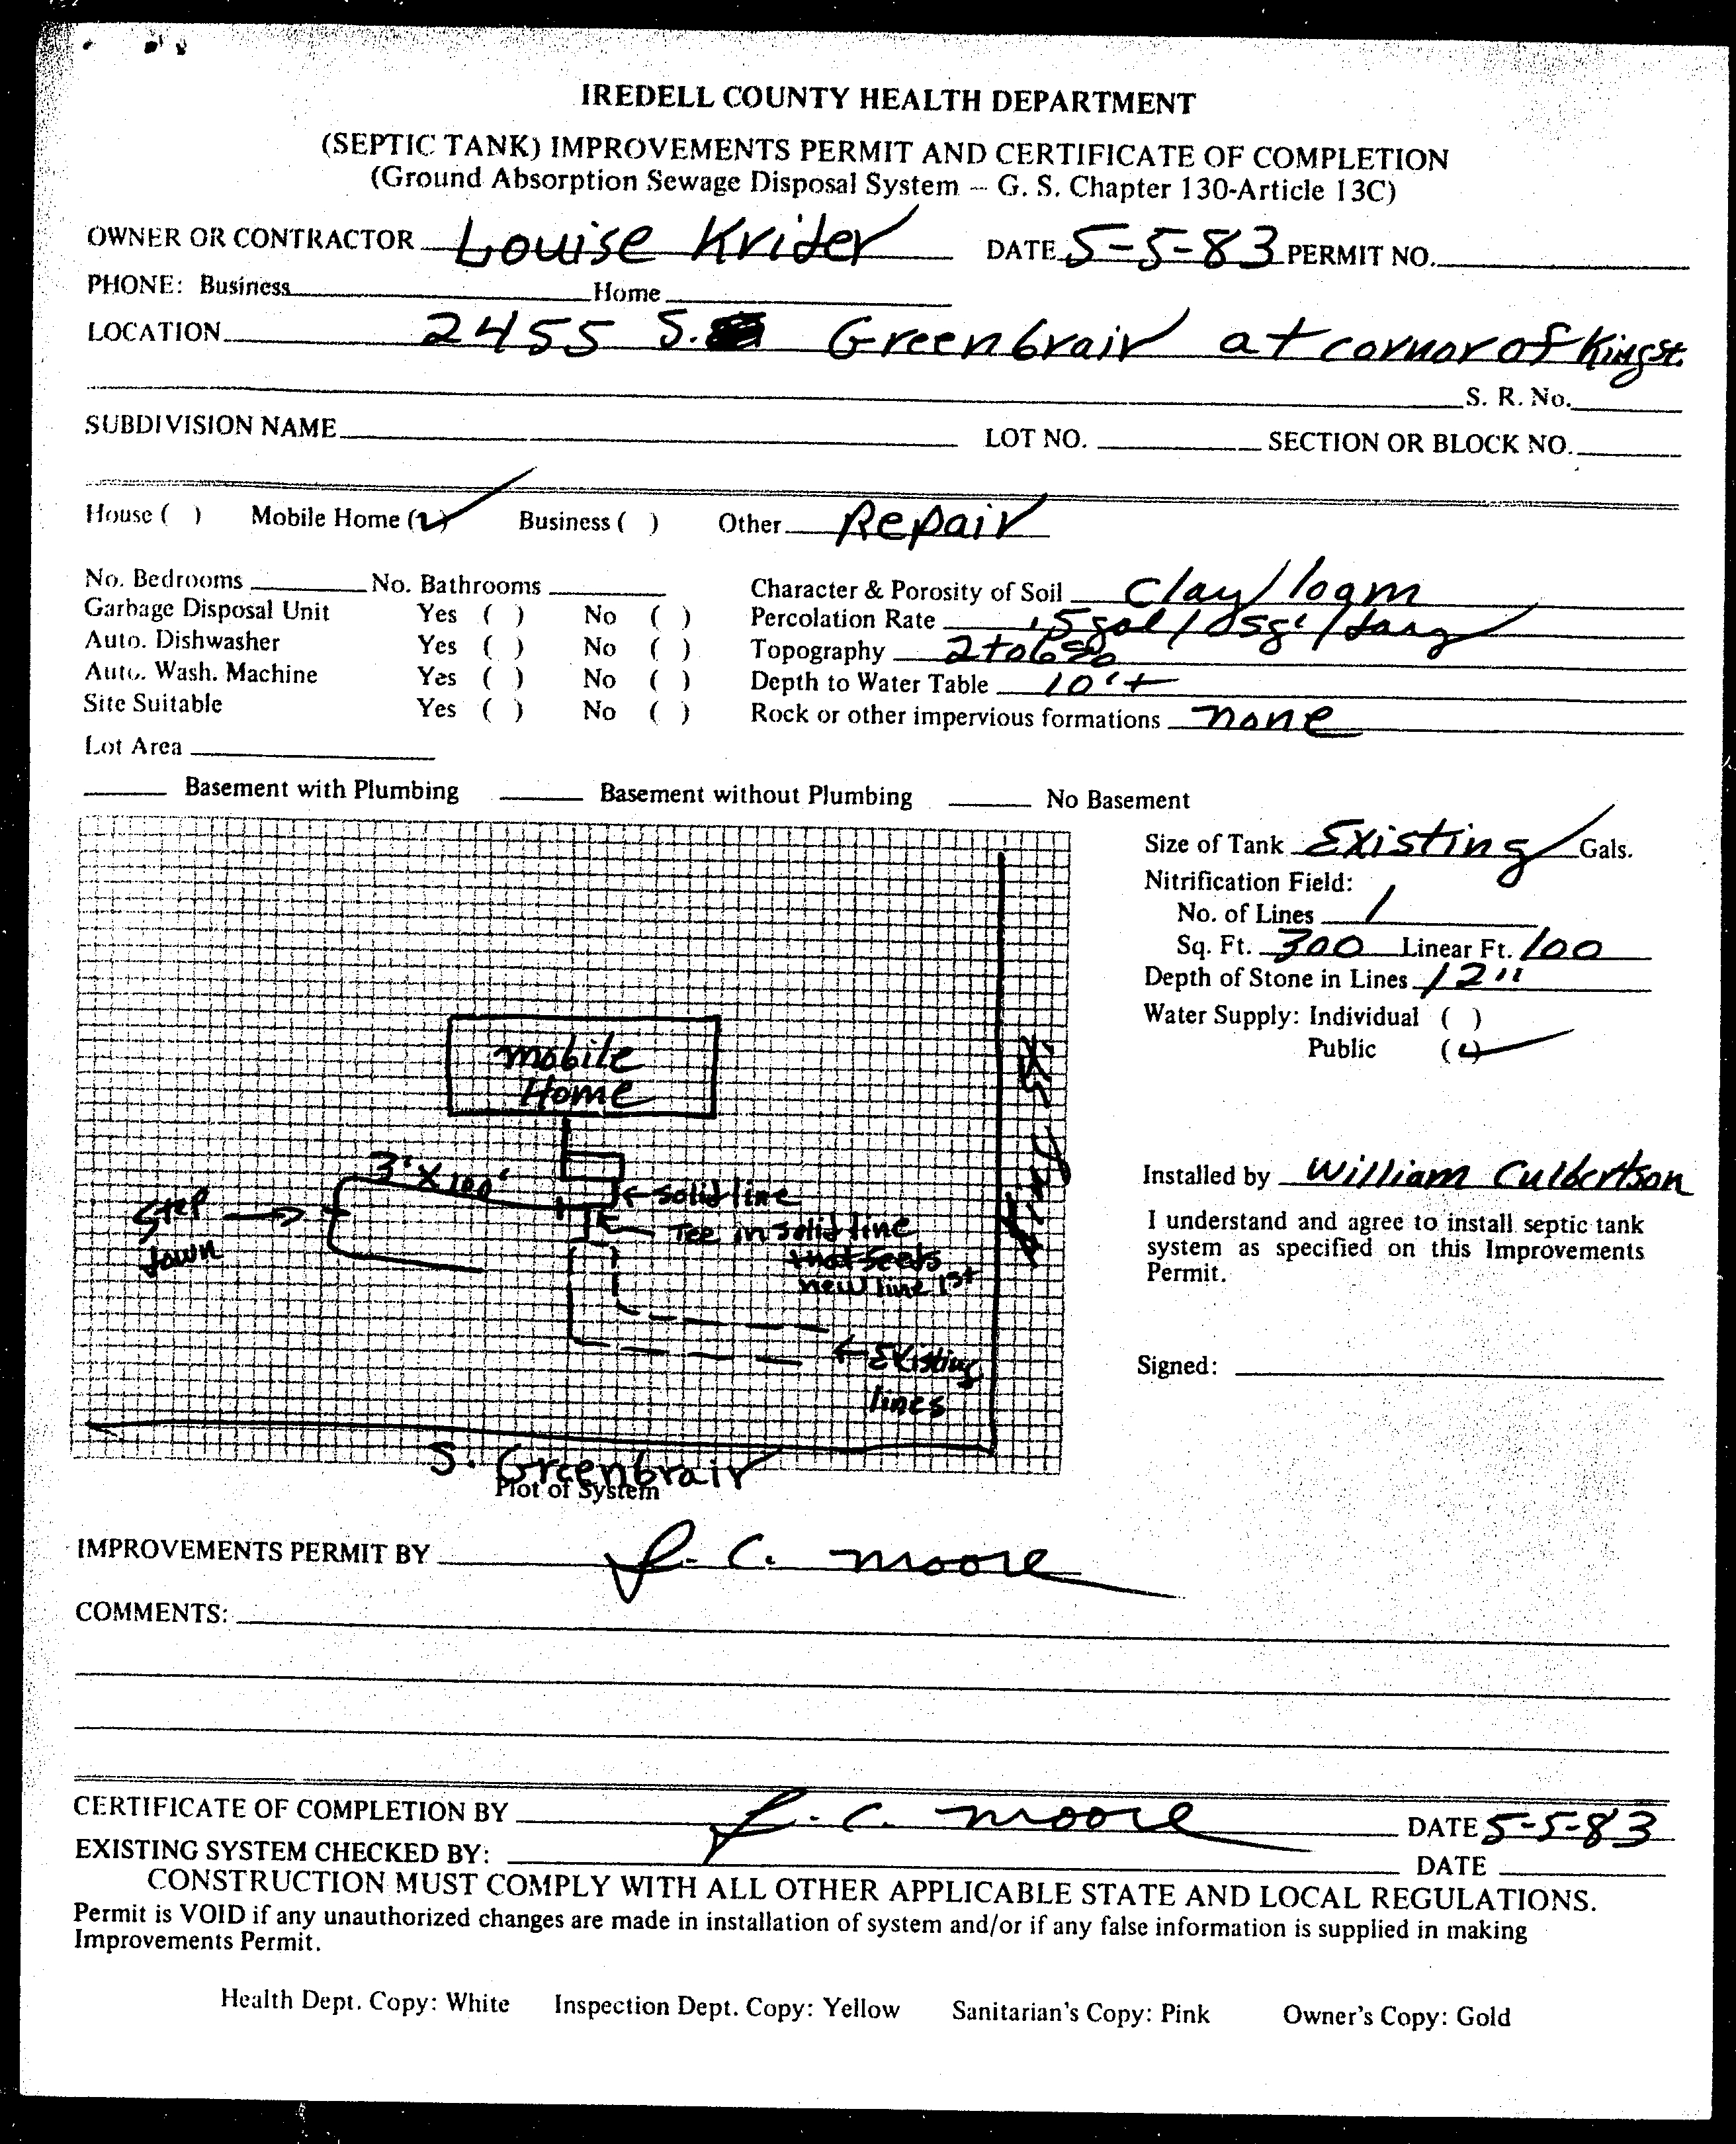 IREDELL COUNTY HEALTH DEPARTMENT
(SEPTIC TANK) IMPROVEMENTS PERMIT AND CERTIFICATE OF COMPLETION
(Ground Absorption Sewage Disposal System - G. S. Chapter 130-Article 13C)
OWNER OR CONTRACTOR Louise Krider DATE 5-5-83 PERMIT NO.
PHONE: Business Home
LOCATION 2455 S. Greenbrair at cornor of King st.
S. R. No.
SUBDIVISION NAME LOT NO. SECTION OR BLOCK NO.
House ( ) Mobile Home (✓) Business ( ) Other Repair
No. Bedrooms No. Bathrooms Character & Porosity of Soil clay/loam
Garbage Disposal Unit Yes ( ) No ( ) Percolation Rate .5 gal/
Auto. Dishwasher Yes ( ) No ( ) Topography 2 to 6%
Auto. Wash. Machine Yes ( ) No ( ) Depth to Water Table 10'+
Site Suitable Yes ( ) No ( ) Rock or other impervious formations none
Lot Area
Basement with Plumbing Basement without Plumbing No Basement
Size of Tank Existing Gals.
Nitrification Field:
No. of Lines 1
Sq. Ft. 300 Linear Ft. 100
Depth of Stone in Lines 12"
Water Supply: Individual ( )
Public (✓)
Installed by William Culbertson
I understand and agree to install septic tank
system as specified on this Improvements
Permit.
Signed:
mobile
Home
King St.
3' X 100'
solid line
Step
down
Tee in solid line
that feeds
new line 1st
Existing
lines
S. Greenbrair
Plot of System
IMPROVEMENTS PERMIT BY J. C. Moore
COMMENTS:
CERTIFICATE OF COMPLETION BY J. C. Moore DATE 5-5-83
EXISTING SYSTEM CHECKED BY: DATE
CONSTRUCTION MUST COMPLY WITH ALL OTHER APPLICABLE STATE AND LOCAL REGULATIONS.
Permit is VOID if any unauthorized changes are made in installation of system and/or if any false information is supplied in making
Improvements Permit.
Health Dept. Copy: White Inspection Dept. Copy: Yellow Sanitarian's Copy: Pink Owner's Copy: Gold